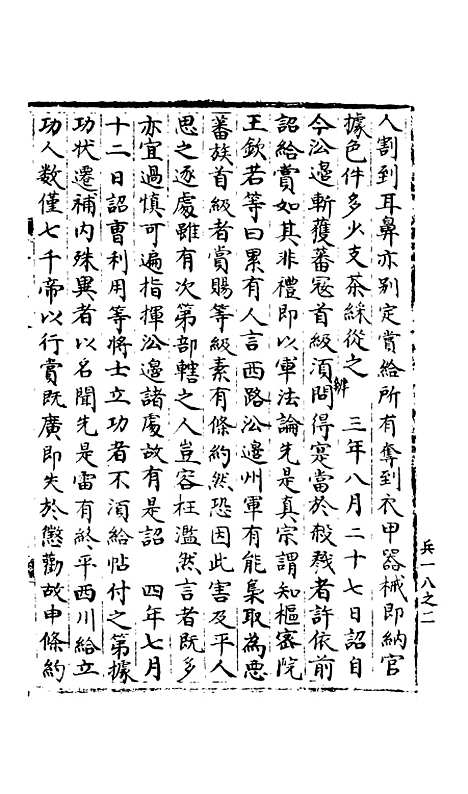 人割到耳鼻亦别定賞給所有奪到衣甲器械即納官
據色件多少支茶綵從之　三年八月二十七日詔自
今㳂邊斬獲蕃宼首級湏辨問得寔當於殺戮者許依前
詔給賞如其非禮即以軍法論先是真宗謂知樞宻院
王欽若等曰累有人言西路㳂邊州軍有能梟取為惡
蕃族首級者賞賜等級素有條約然恐因此害及平人
思之逐處雖有次第部轄之人豈容枉濫然言者既多
亦宜過慎可遍指揮㳂邊諸處故有是詔　四年七月
十二日詔曺利用等將士立功者不湏給帖付之第據
功状遷補内殊異者以名聞先是雷有終平西川給立
功人數僅七千帝以行賞既廣即失於懲勸故申條約
兵一八之二